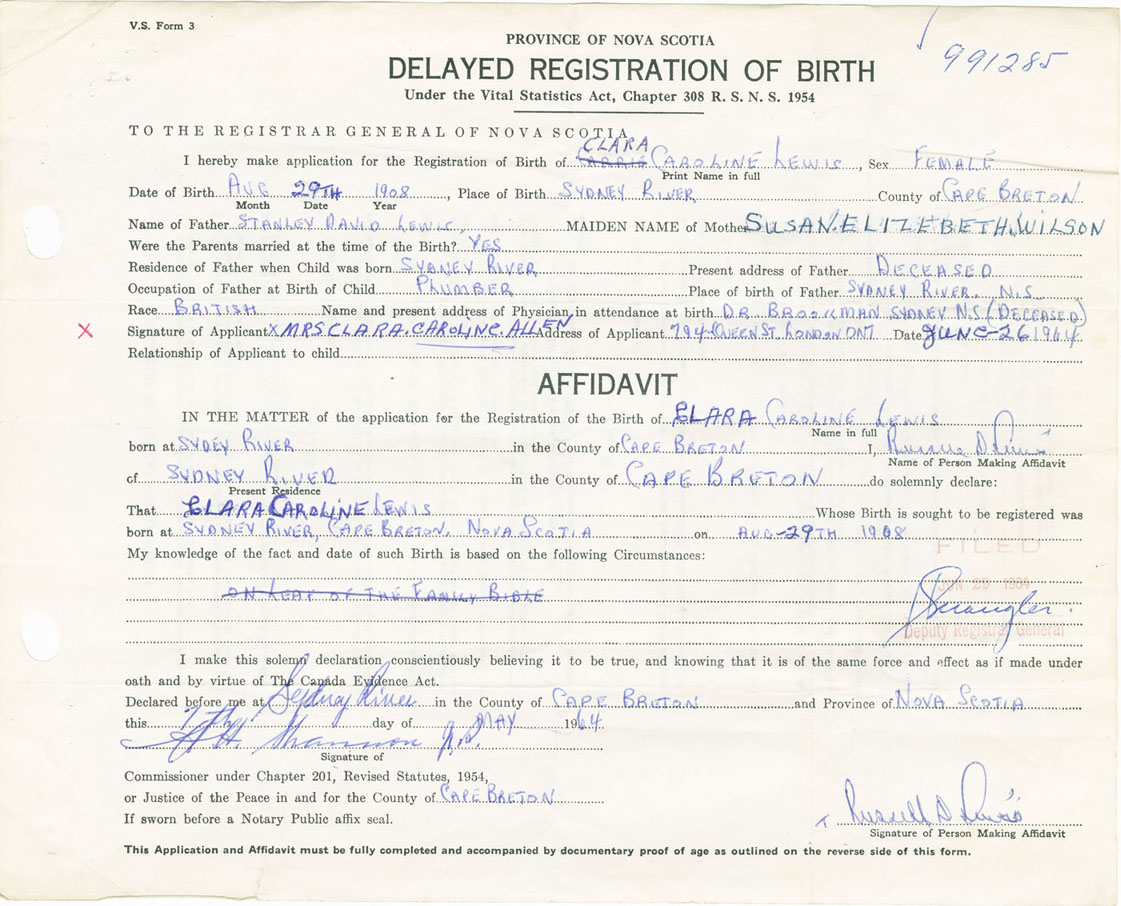 V.S. Form 3
991285
PROVINCE OF NOVA SCOTIA
DELAYED REGISTRATION OF BIRTH
Under the Vital Statistics Act, Chapter 308 R. S. N. S. 1954
TO THE REGISTRAR GENERAL OF NOVA SCOTIA
CLARA
I hereby make application for the Registration of Birth of CARRIE CAROLINE LEWIS, Sex FEMALE
Print Name in full
Date of Birth AUG 29TH 1908, Place of Birth SYDNEY RIVER County of CAPE BRETON
Month Date Year
Name of Father STANLEY DAVID LEWIS, MAIDEN NAME of Mother SUSAN. ELIZEBETH. WILSON
Were the Parents married at the time of the Birth? YES
Residence of Father when Child was born SYDNEY RIVER Present address of Father DECEASED
Occupation of Father at Birth of Child PLUMBER Place of birth of Father SYDNEY RIVER, N.S.
Race BRITISH Name and present address of Physician in attendance at birth DR BROOKMAN SYDNEY N.S (DECEASED)
X Signature of Applicant X MRS. CLARA. CAROLINE. ALLEN Address of Applicant 794 QUEEN ST. LONDON ONT Date JUNE-26 1964
Relationship of Applicant to child
AFFIDAVIT
IN THE MATTER of the application for the Registration of the Birth of CLARA CAROLINE LEWIS
Name in full
born at SYDEY RIVER in the County of CAPE BRETON I, Russell D Lewis
Name of Person Making Affidavit
of SYDNEY RIVER in the County of CAPE BRETON do solemnly declare:
Present Residence
That CLARA CAROLINE LEWIS Whose Birth is sought to be registered was
born at SYDNEY RIVER, CAPE BRETON, NOVA SCOTIA on AUG-29TH 1908
My knowledge of the fact and date of such Birth is based on the following Circumstances:
FILED
JUN 29 1964
ON LEAF OF THE FAMILY BIBLE
Deputy Registrar General
I make this solemn declaration conscientiously believing it to be true, and knowing that it is of the same force and effect as if made under
oath and by virtue of The Canada Evidence Act.
Declared before me at Sydney River in the County of CAPE BRETON and Province of NOVA SCOTIA
this 7th day of MAY 1964.
Shannon J.P.
Signature of
Commissioner under Chapter 201, Revised Statutes, 1954,
or Justice of the Peace in and for the County of CAPE BRETON
If sworn before a Notary Public affix seal.
Russell D Lewis
Signature of Person Making Affidavit
This Application and Affidavit must be fully completed and accompanied by documentary proof of age as outlined on the reverse side of this form.